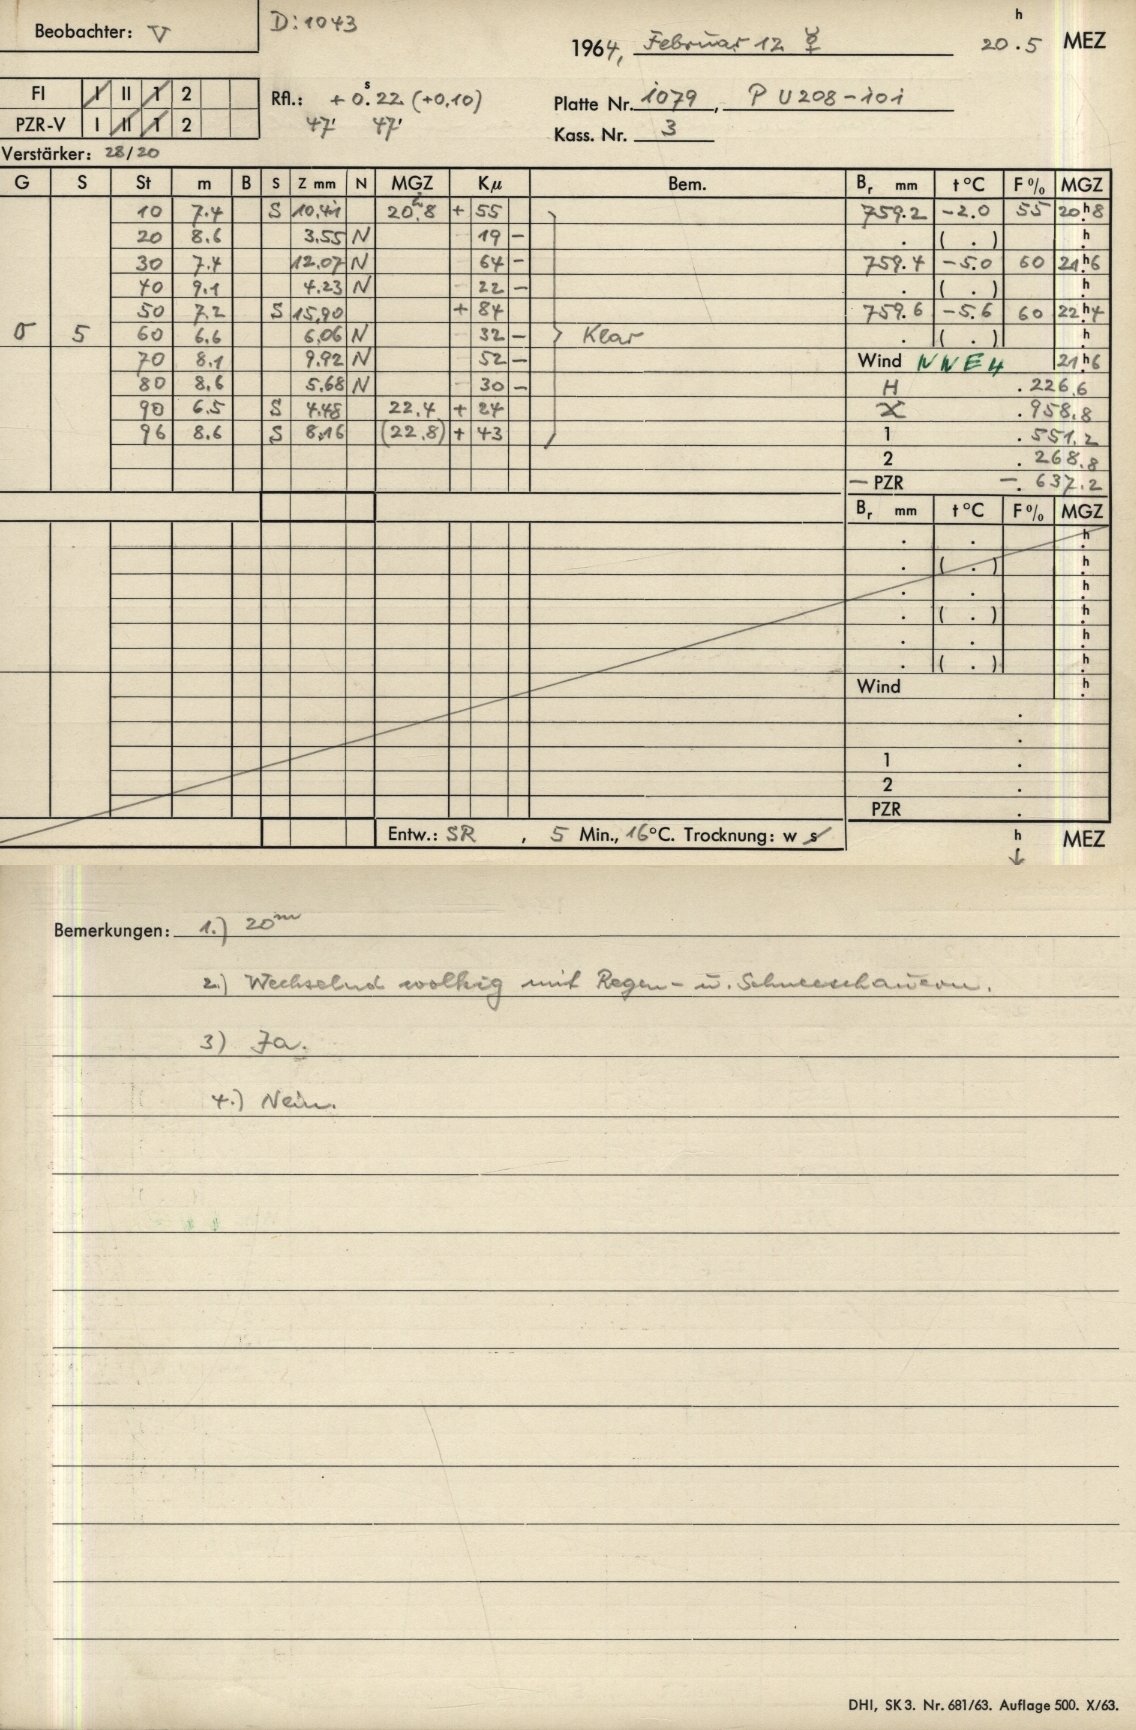 D: 1043
Beobachter: V
1964, Februar 12 ☿ 20.5 h MEZ
FI I II 1 2
PZR-V I II 1 2
Rfl.: + 0.s22 (+0.10)
47' 47'
Platte Nr. 1079, P U208-101
Kass. Nr. 3
Verstärker: 28/20
G S St m B S Z mm N MGZ Kμ Bem. Br mm t °C F % MGZ
10 7.4 S 10.41 20.h8 + 55 759.2 -2.0 55 20.h8
20 8.6 3.55 N 19 - . ( . ) h.
30 7.4 12.07 N 64 - 759.4 -5.0 60 21.h6
40 9.1 4.23 N 22 - . ( . ) h.
50 7.2 S 15.90 + 84 759.6 -5.6 60 22.h4
σ 5 60 6.6 6.06 N 32 - Klar . ( . ) h.
70 8.1 9.92 N 52 - Wind NNE4 21.h6
80 8.6 5.68 N 30 - H .226.6
90 6.5 S 4.48 22.4 + 24 X .958.8
96 8.6 S 8.16 (22.8) + 43 1 .551.2
2 .268.8
- PZR -.637.2
Br mm t °C F % MGZ
. . h.
. ( . ) h.
. . h.
. ( . ) h.
. . h.
. ( . ) h.
Wind h.
.
.
1 .
2 .
PZR .
Entw.: SR , 5 Min., 16°C. Trocknung: w s
h MEZ
Bemerkungen: 1.) 20m
2.) Wechselnd wolkig mit Regen- u. Schneeschauern.
3) Ja.
4.) Nein.
DHI, SK 3. Nr. 681/63. Auflage 500. X/63.